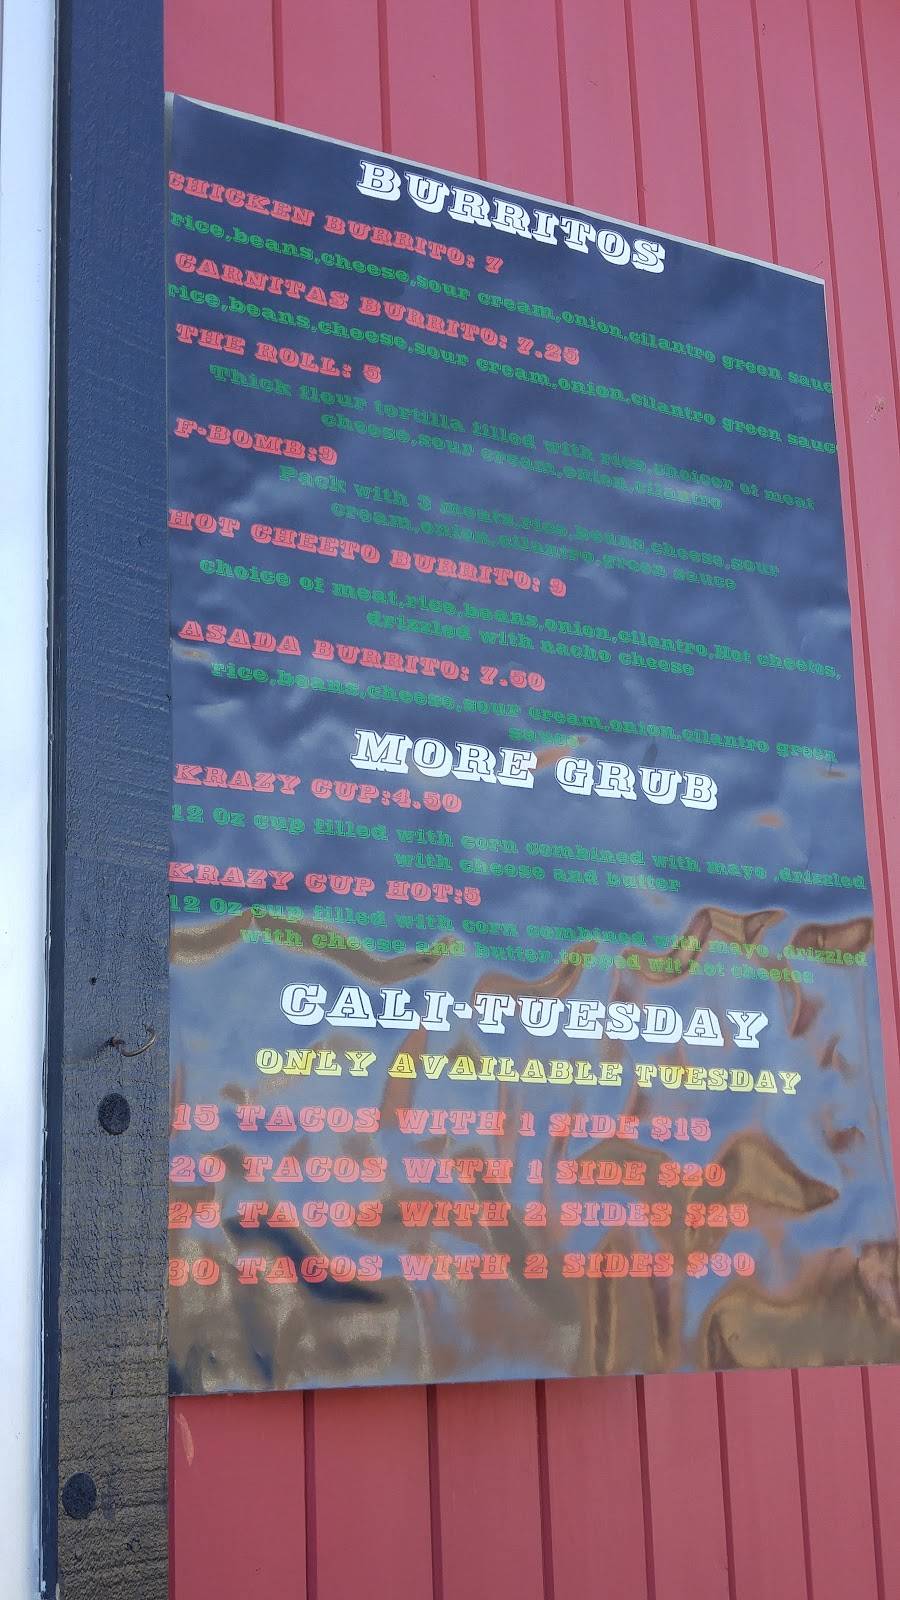 BURRITOS
CHICKEN BURRITO: 7
rice,beans,cheese,sour cream,onion,cilantro green sauc
CARNITAS BURRITO: 7.25
rice,beans,cheese,sour cream,onion,cilantro green sauce
THE ROLL: 5
Thick flour tortilla filled with rice,choicer of meat
cheese,sour cream,onion,cilantro
F-BOMB:9
Pack with 3 meats,rice,beans,cheese,sour
cream,onion,cilantro,green sauce
HOT CHEETO BURRITO: 9
choice of meat,rice,beans,onion,cilantro,Hot cheetos,
drizzled with nacho cheese
ASADA BURRITO: 7.50
rice,beans,cheese,sour cream,onion,cilantro green
sauce
MORE GRUB
KRAZY CUP:4.50
12 Oz cup filled with corn combined with mayo ,drizzled
with cheese and butter
KRAZY CUP HOT:5
12 Oz cup filled with corn combined with mayo ,drizzled
with cheese and butter,topped wit hot cheetos
CALI-TUESDAY
ONLY AVAILABLE TUESDAY
15 TACOS WITH 1 SIDE $15
20 TACOS WITH 1 SIDE $20
25 TACOS WITH 2 SIDES $25
30 TACOS WITH 2 SIDES $30